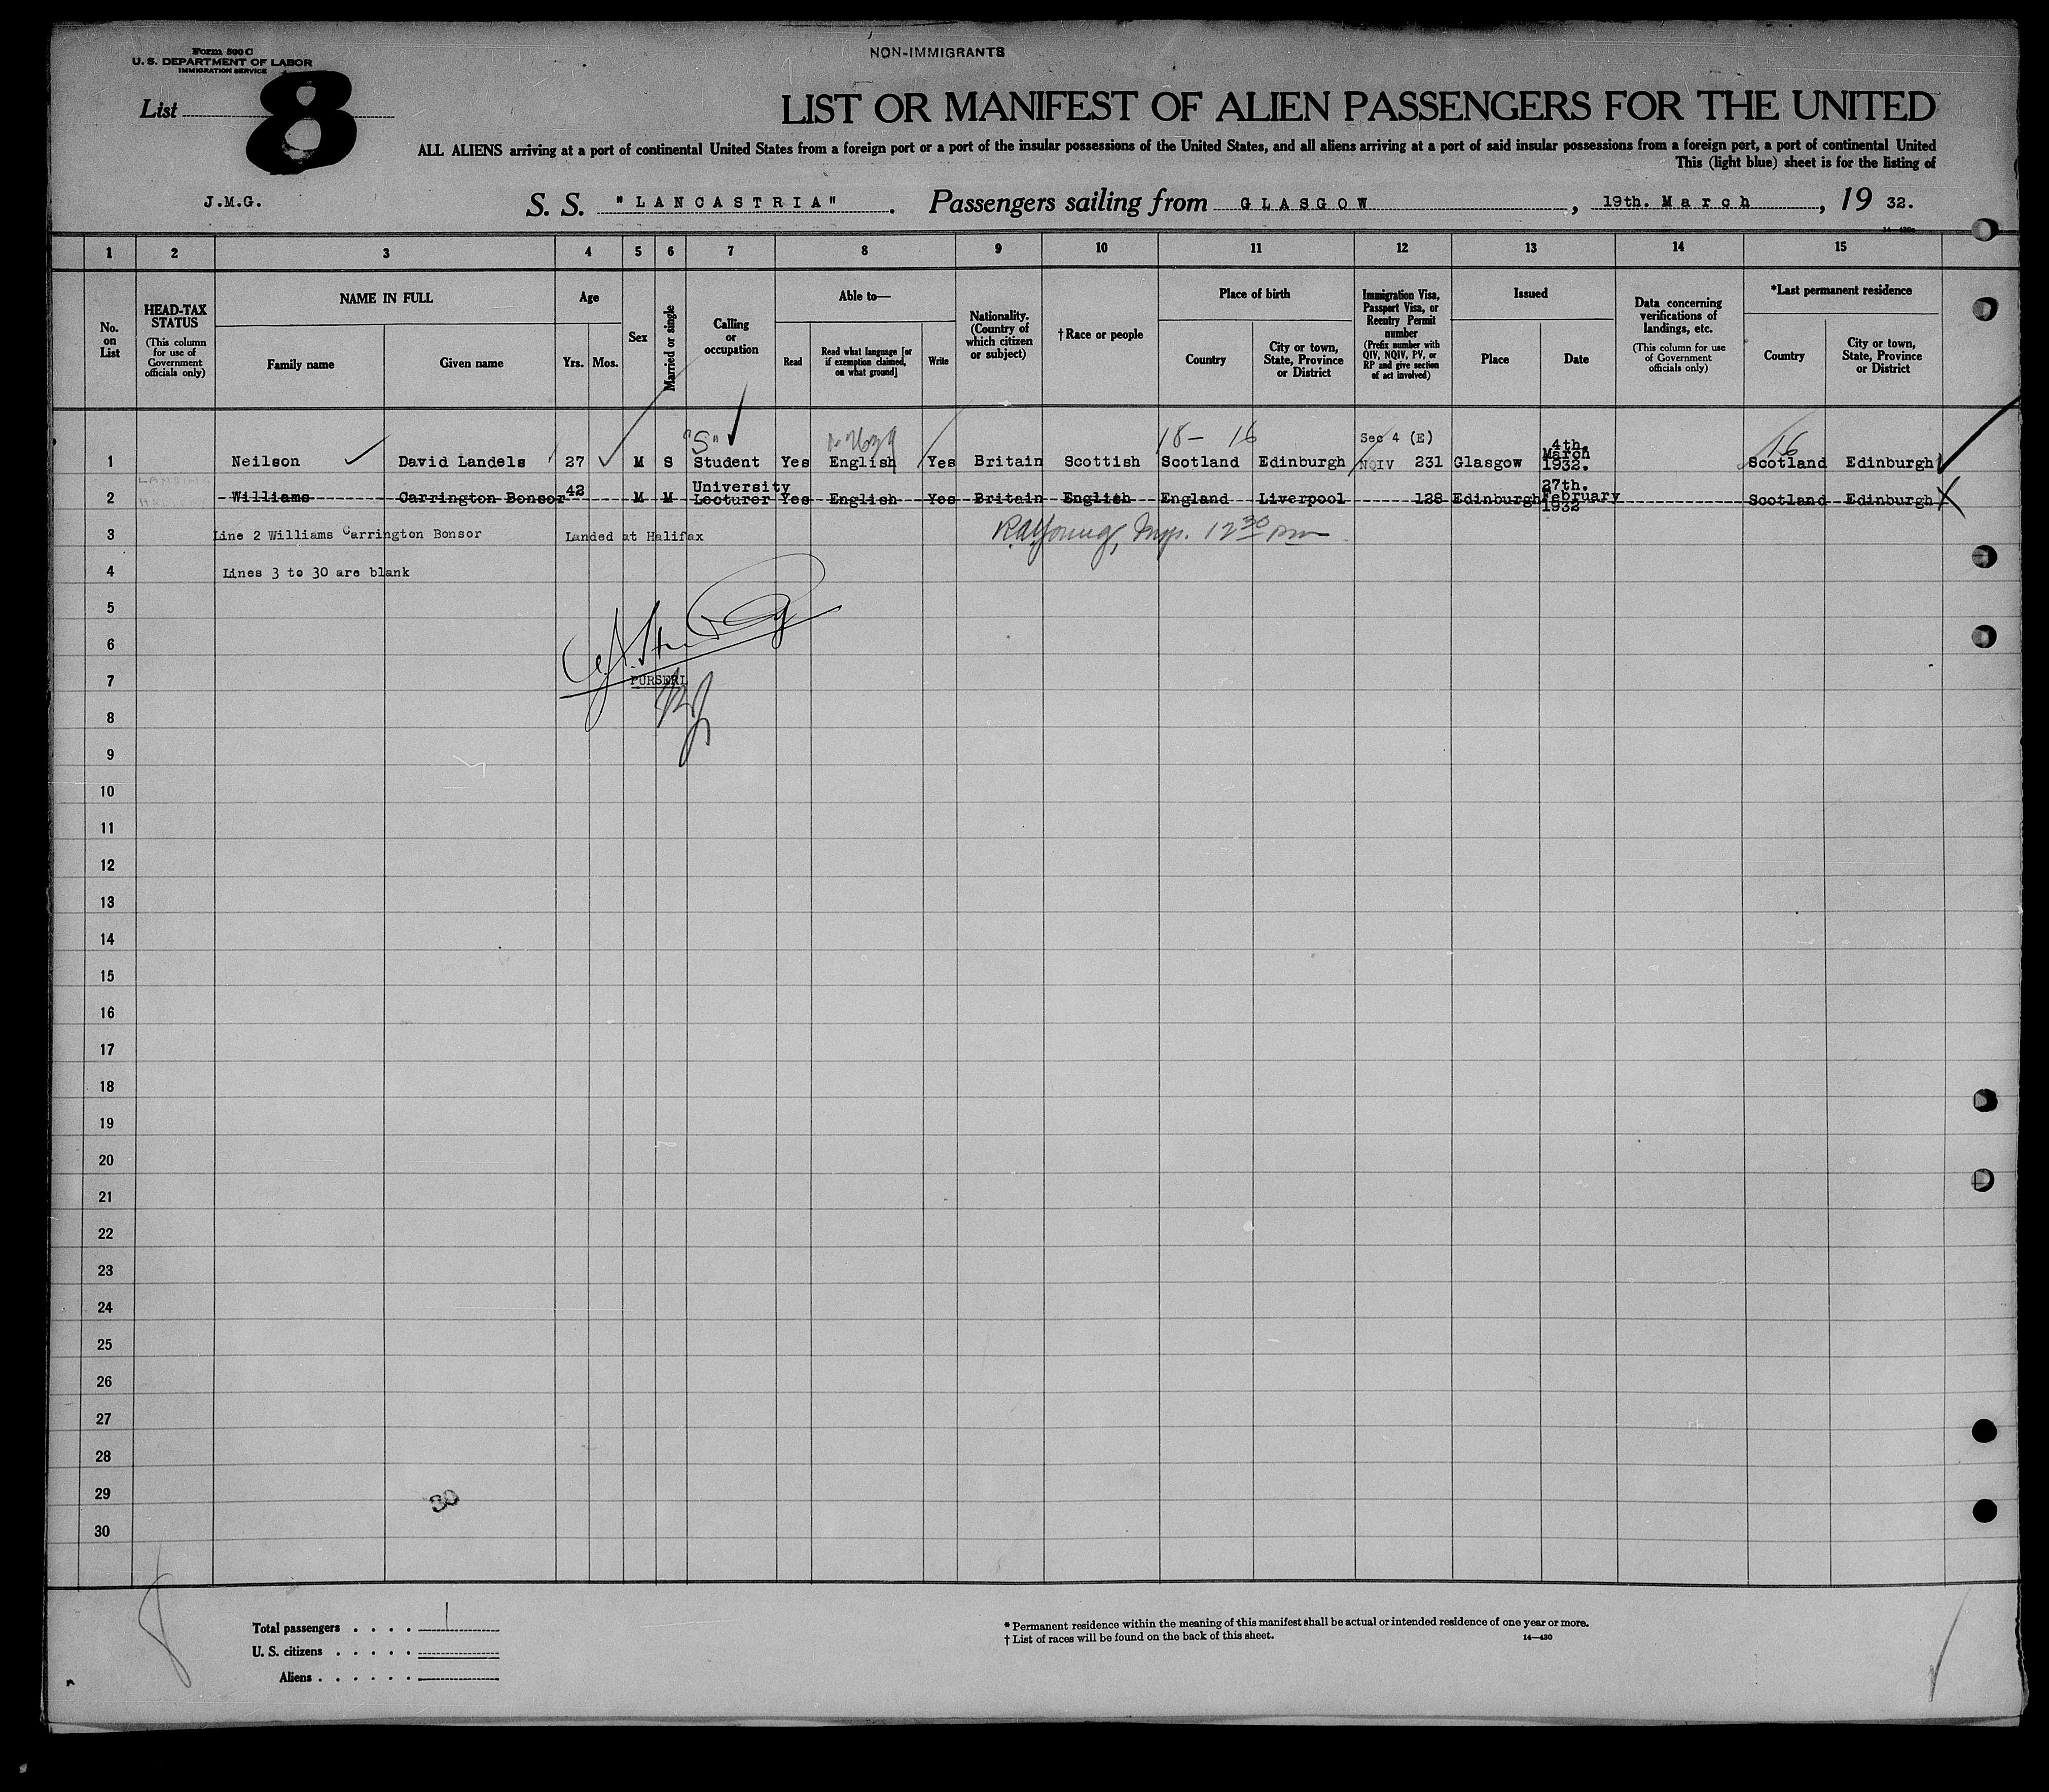 Form 500 C
U. S. DEPARTMENT OF LABOR
IMMIGRATION SERVICE
NON-IMMIGRANTS
List 8
LIST OR MANIFEST OF ALIEN PASSENGERS FOR THE UNITED
ALL ALIENS arriving at a port of continental United States from a foreign port or a port of the insular possessions of the United States, and all aliens arriving at a port of said insular possessions from a foreign port, a port of continental United
This (light blue) sheet is for the listing of
J.M.G. S. S. "LANCASTRIA". Passengers sailing from GLASGOW, 19th. March, 19 32.
1 2 3 4 5 6 7 8 9 10 11 12 13 14 15
No. on List
HEAD-TAX STATUS (This column for use of Government officials only)
NAME IN FULL
Family name Given name
Age
Yrs. Mos.
Sex
Married or single
Calling or occupation
Able to—
Read Read what language [or if exemption claimed, on what ground] Write
Nationality. (Country of which citizen or subject)
†Race or people
Place of birth
Country City or town, State, Province or District
Immigration Visa, Passport Visa, or Reentry Permit number (Prefix number with QIV, NQIV, PV, or RP and give section of act involved)
Issued
Place Date
Data concerning verifications of landings, etc. (This column for use of Government officials only)
*Last permanent residence
Country City or town, State, Province or District
"S" 18- 16 Sec 4 (E) 16
1 Neilson David Landels 27 M S Student Yes English Yes Britain Scottish Scotland Edinburgh NQIV 231 Glasgow 4th. March 1932. Scotland Edinburgh
2 Williams Carrington Bonsor 42 M M University Lecturer Yes English Yes Britain English England Liverpool 128 Edinburgh 27th. February 1932 Scotland Edinburgh
3 Line 2 Williams Carrington Bonsor Landed at Halifax Insp. 12 30 pm
4 Lines 3 to 30 are blank
5
6
7 PURSER
8
9
10
11
12
13
14
15
16
17
18
19
20
21
22
23
24
25
26
27
28
29
30
30
Total passengers . . . . 1
U. S. citizens . . . . .
Aliens . . . . . .
* Permanent residence within the meaning of this manifest shall be actual or intended residence of one year or more.
† List of races will be found on the back of this sheet. 14—430
8